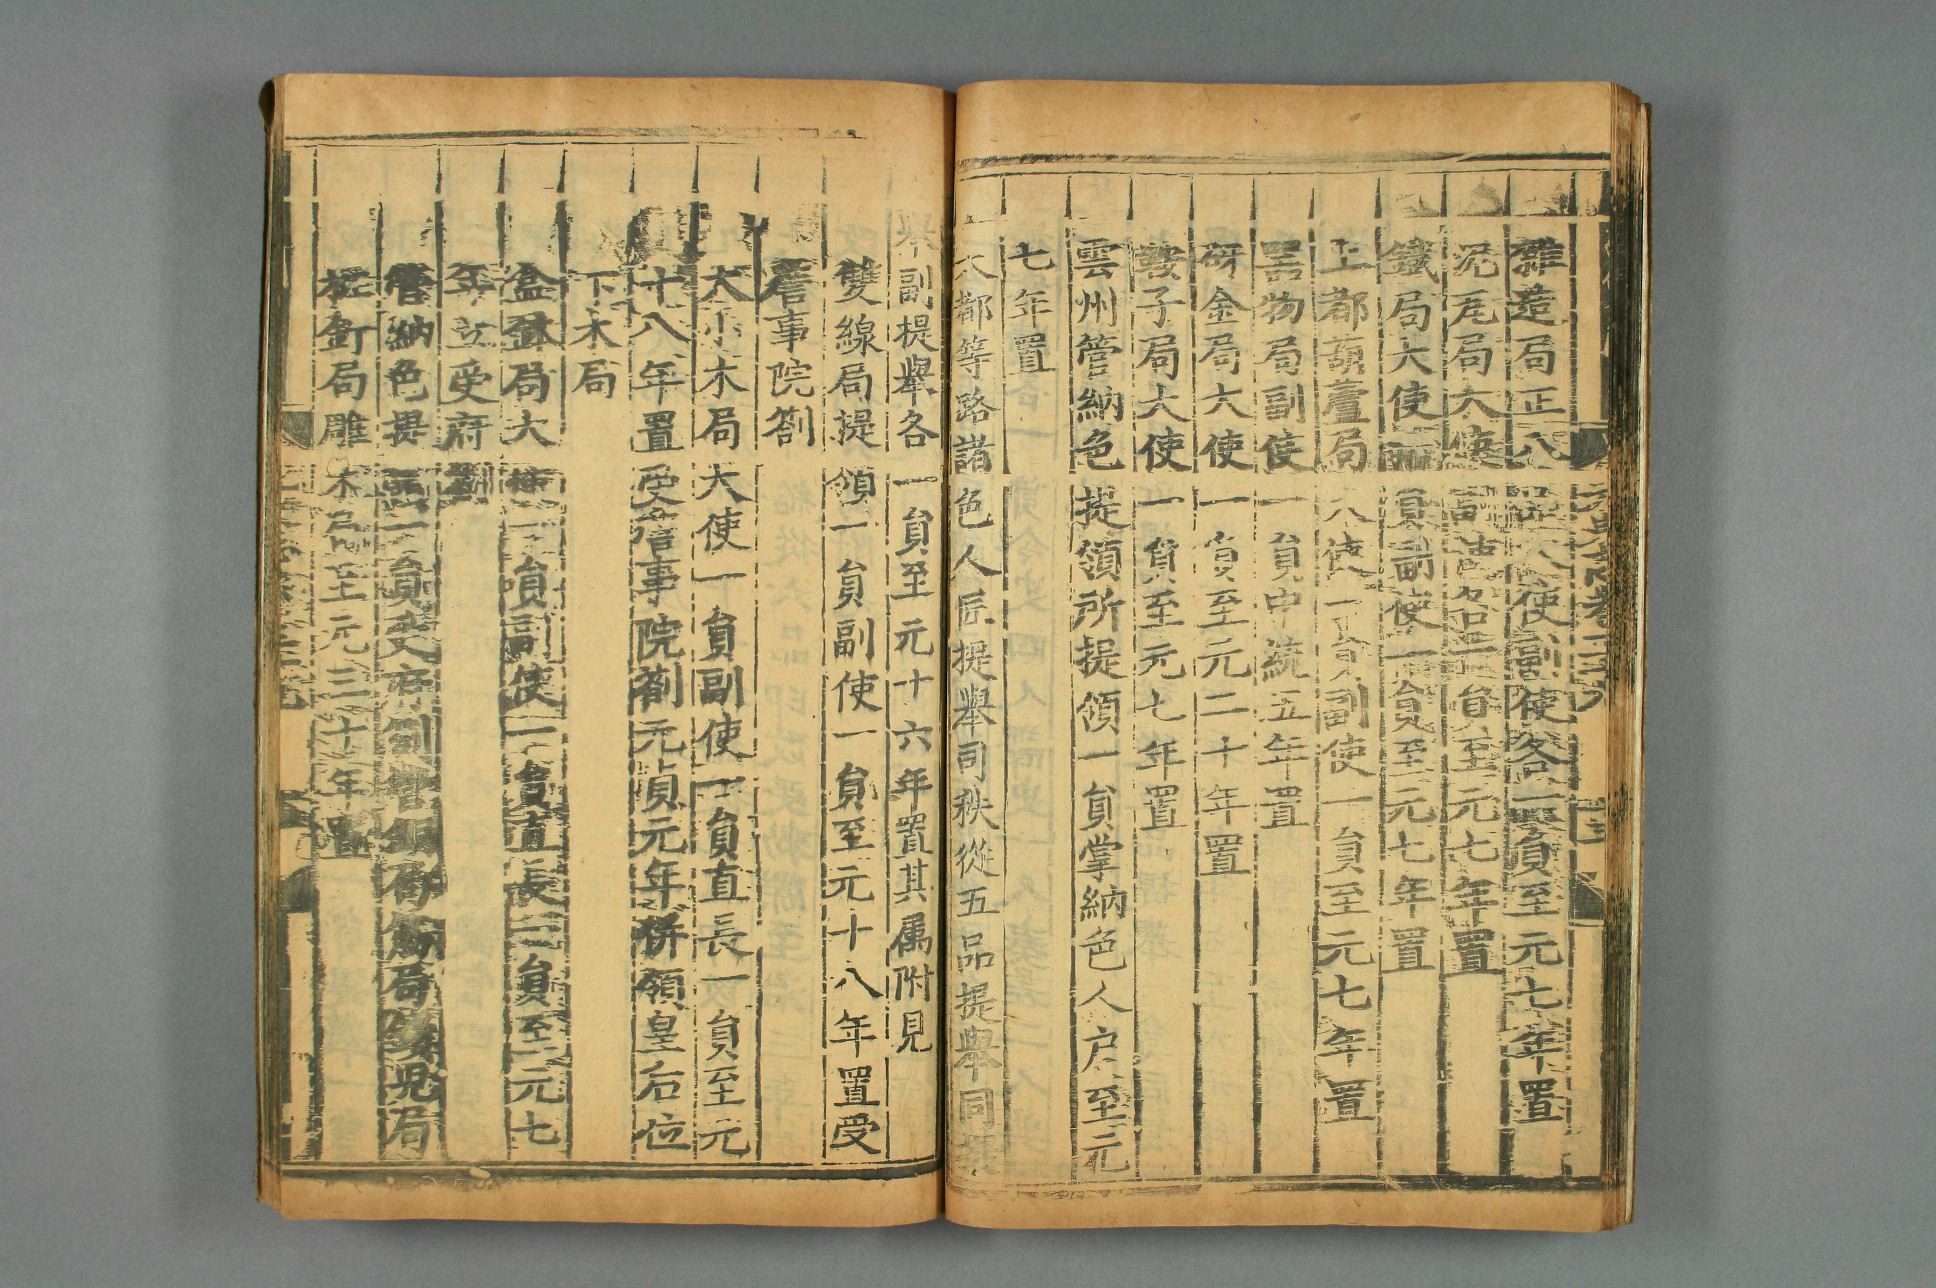 雜造局正八品大使副使各一員至元七年置
泥瓦局大使副使各一員至元七年置
鐵局大使一員副使一員至元七年置
上都葫蘆局大使一員副使一員至元七年置
器物局副使一員中統五年置
砑金局大使一員至元二十年置
鞍子局大使一員至元七年置
雲州管納色提領所提領一員掌納色人户至元
七年置
大都等路諸色人匠提舉司秩從五品提舉同
舉副提舉各一員至元十六年置其属附見
雙線局提領一員副使一員至元十八年置受
詹事院劄
大小木局大使一員副使一員直長一員至元
十八年置受詹事院劄元貞元年併領皇后位
下木局
盒鉢局大使一員副使一員直長一員至元七
年立受府劄
管納色提領一員受府劄管銅局筋局鎖兒局
粧釘局雕木局至元三十年置